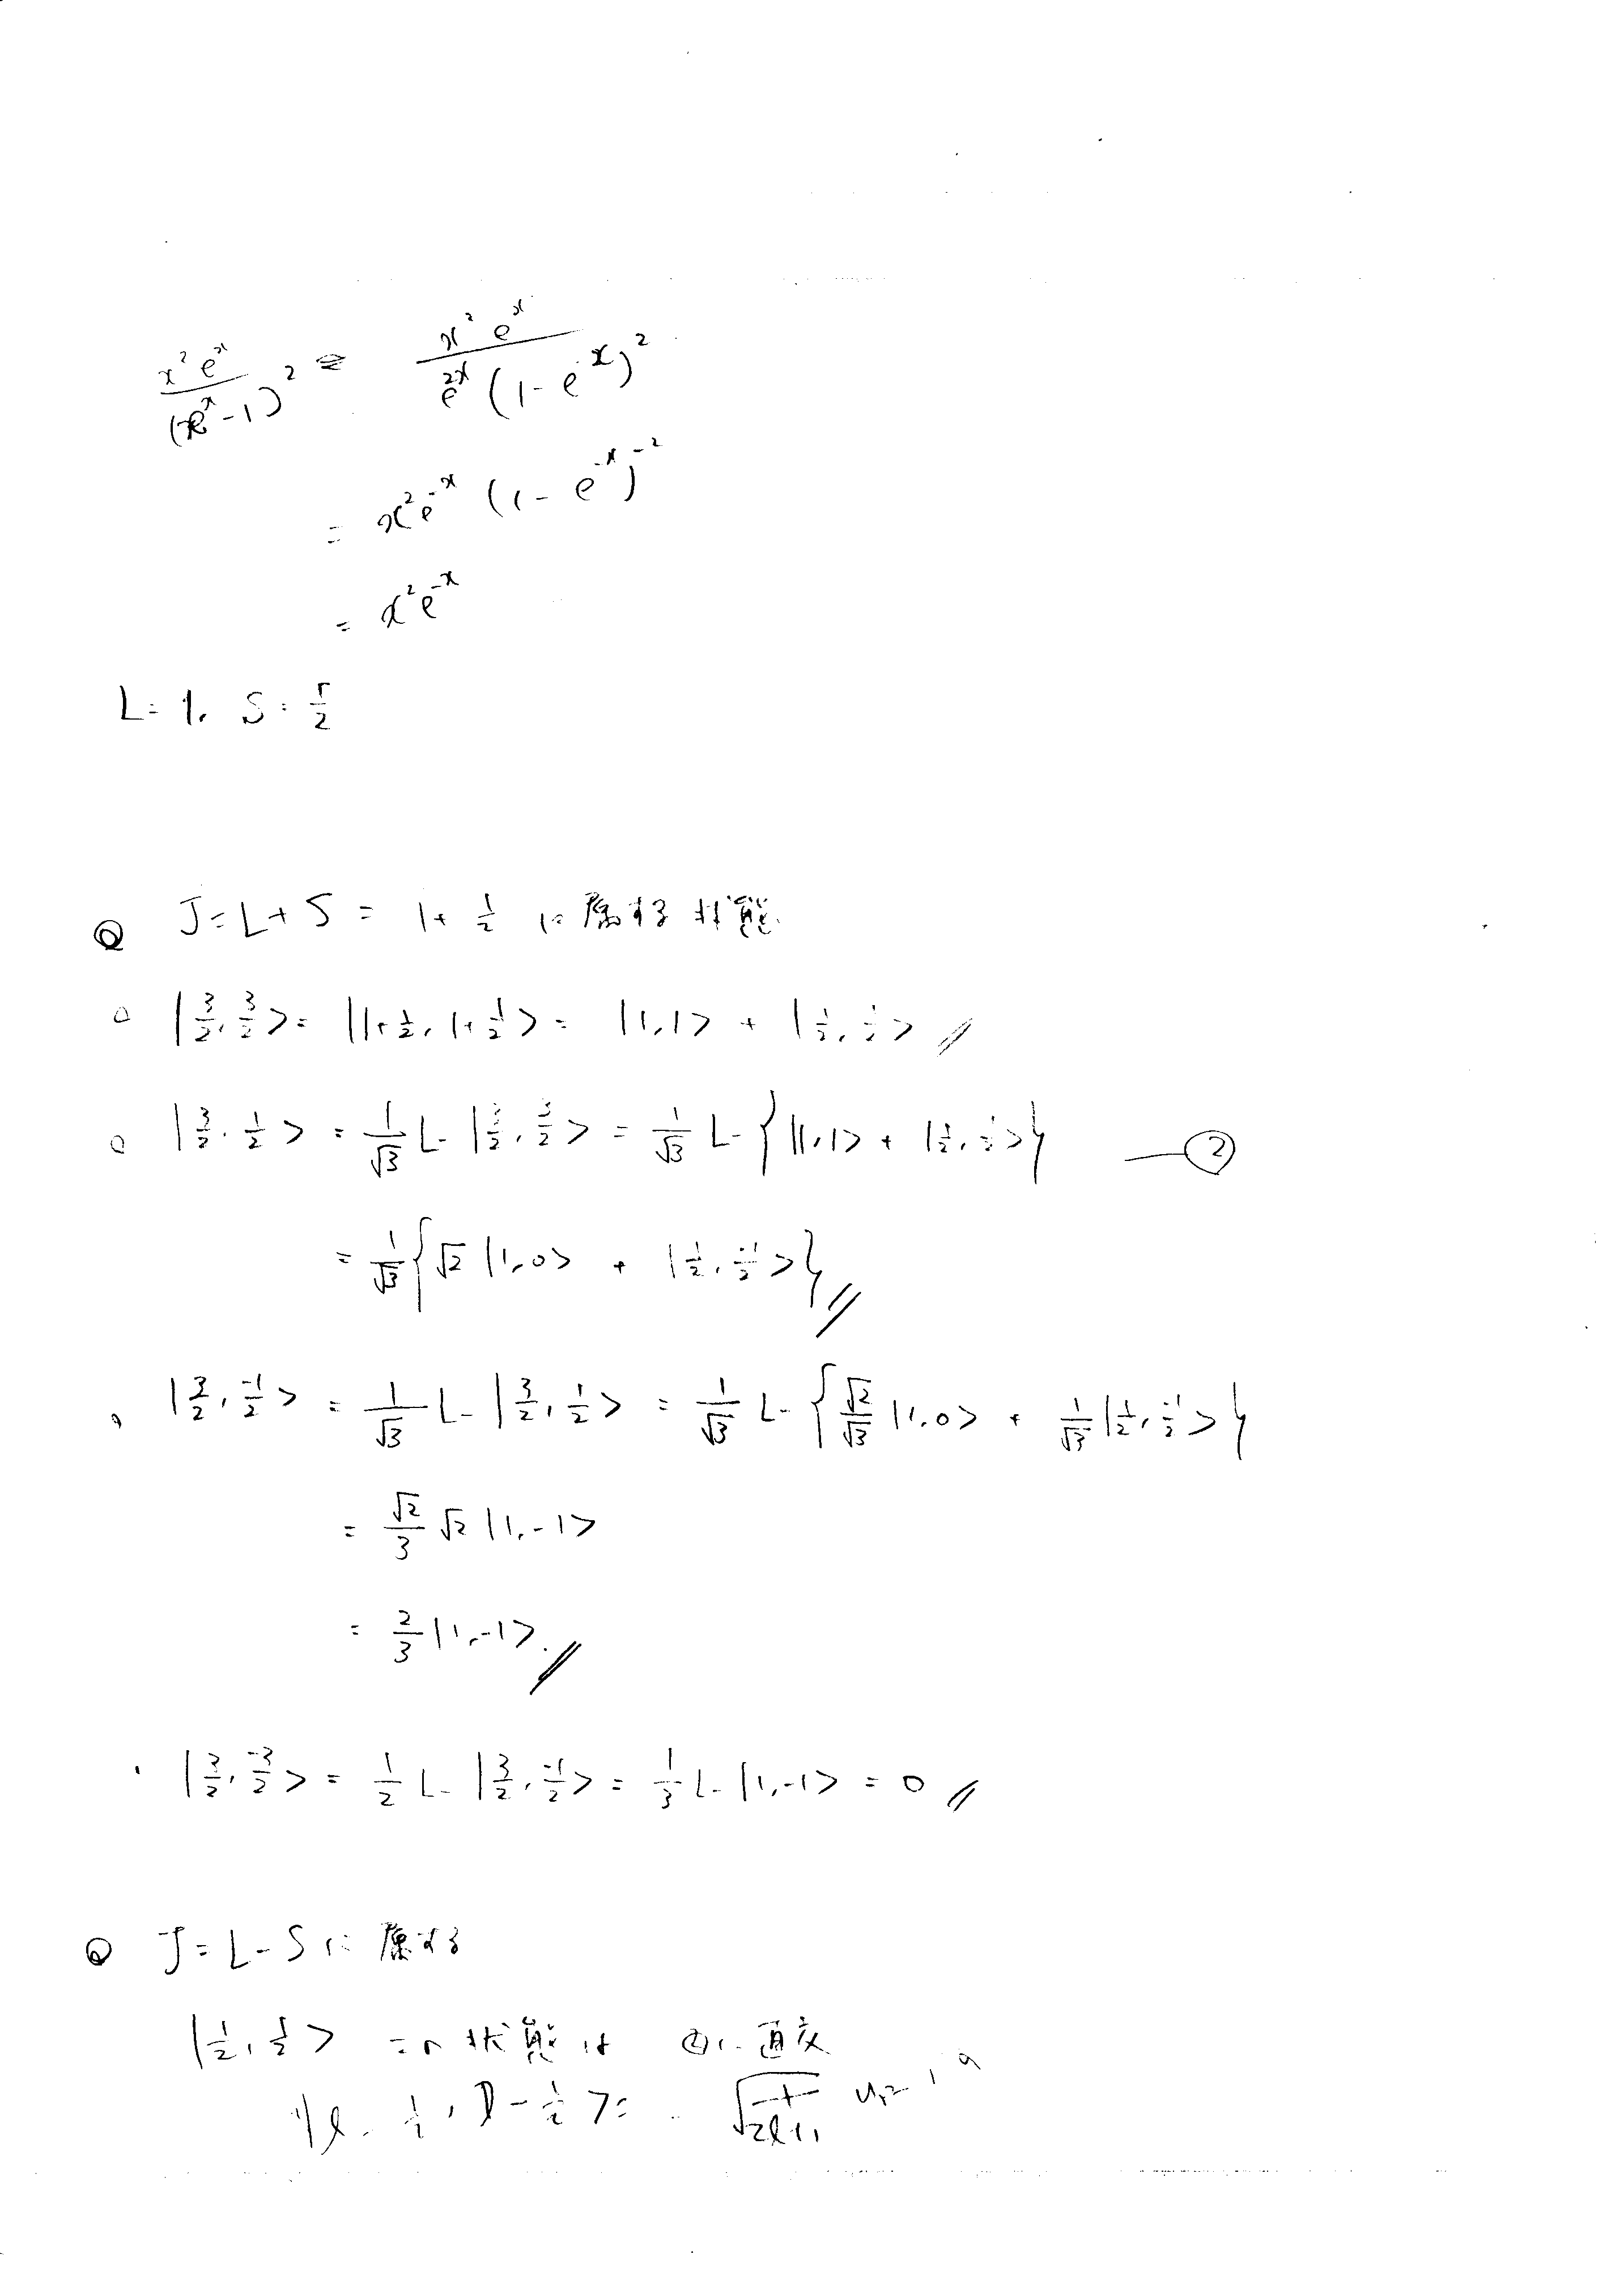 x² eˣ / (eˣ - 1)² = x² eˣ / e²ˣ (1 - eˣ)²
= x² e⁻ˣ (1 - e⁻ˣ)⁻²
= x² e⁻ˣ
L = 1, S = 1/2
J = L + S = 1 + 1/2 に属する状態.
|3/2, 3/2> = |1+1/2, 1+1/2> = |1,1> + |1/2, 1/2> //
|3/2, 1/2> = 1/√3 L- |3/2, 3/2> = 1/√3 L- {|1,1> + |1/2, 1/2>} —②
= 1/√3 {√2 |1,0> + |1/2, -1/2>} //
|3/2, -1/2> = 1/√3 L- |3/2, 1/2> = 1/√3 L- {√2/√3 |1,0> + 1/√3 |1/2, -1/2>}
= √2/3 √2 |1,-1>
= 2/3 |1,-1>. //
|3/2, -3/2> = 1/2 L- |3/2, -1/2> = 1/3 L- |1,-1> = 0 //
J = L - S に属する
|1/2, 1/2> この状態は ②に直交